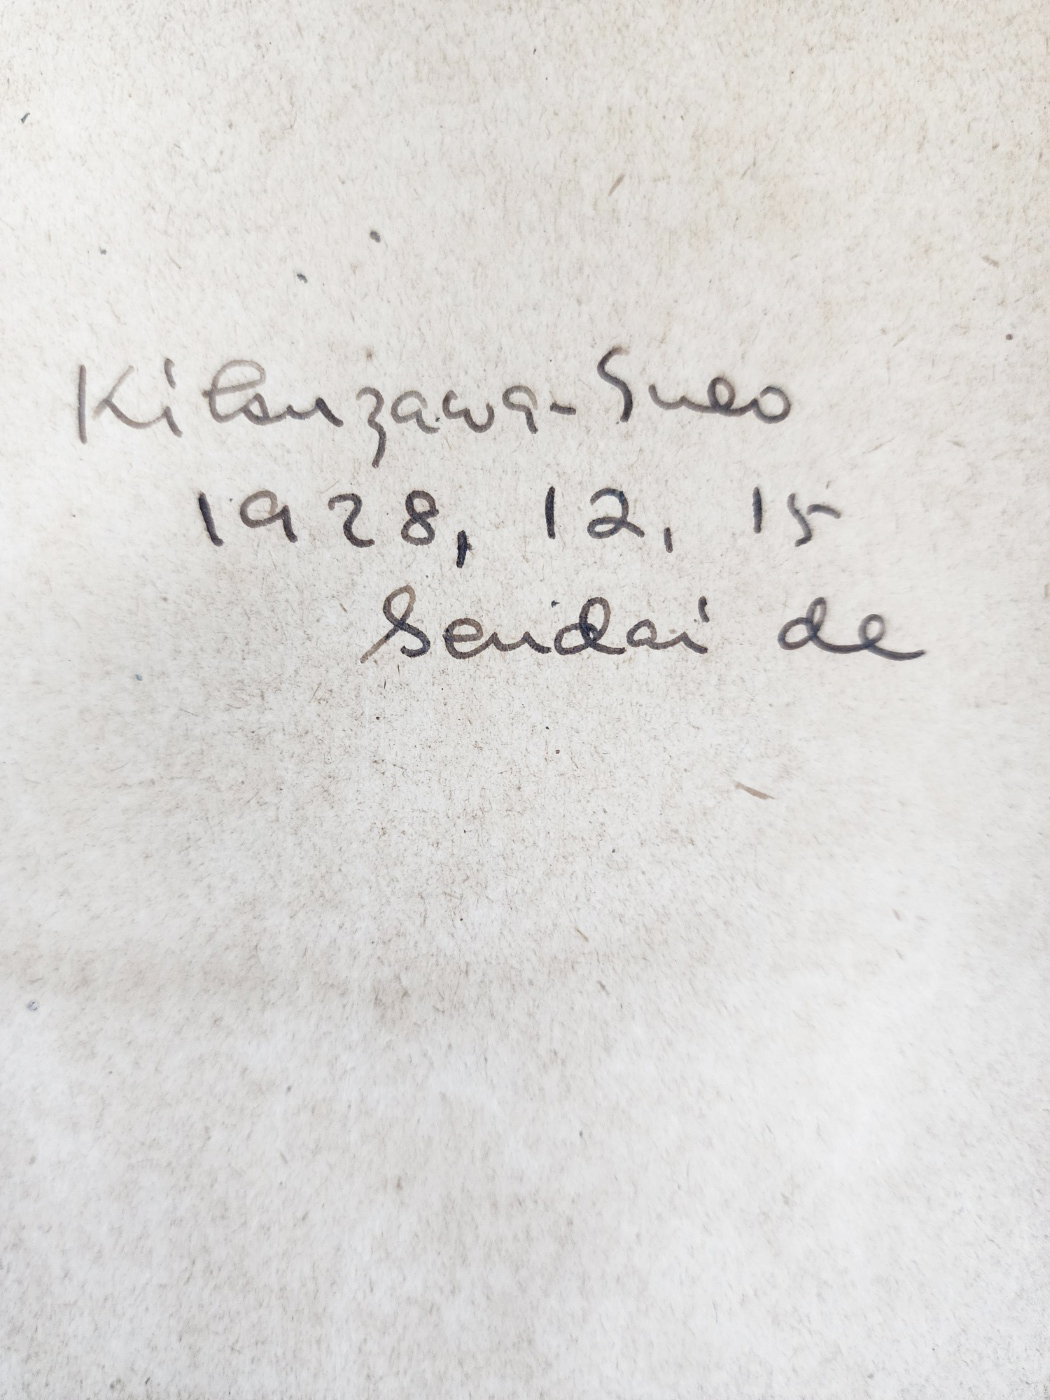 Kitsuzawa-Sueo
1928, 12, 15
Sendai de